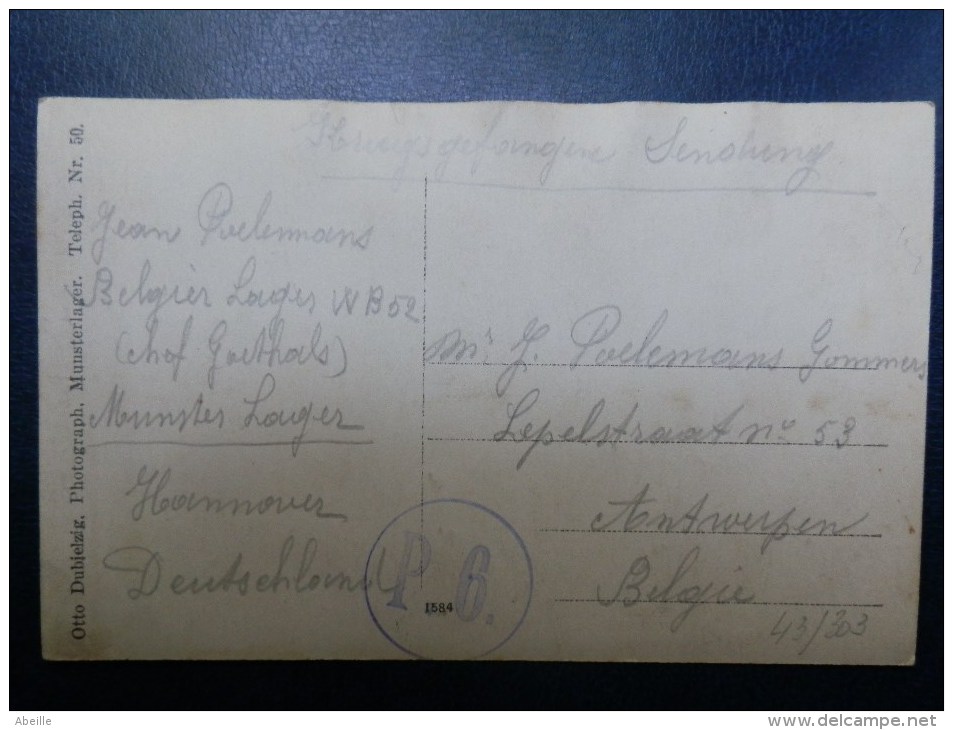 Kriegsgefangene Sendung
Otto Dubielzig, Photograph. Munsterlager. Teleph. Nr. 50.
Jean Poelemans
Belgièr Lager WB52
(chef Goethals)
Munster Lager
Hannover
Deutschland
Mr J. Poelemans Gommers
Lepelstraat no 53
Antwerpen
Belgie
P. 6.
1584
43/303
Abeille
www.delcampe.net